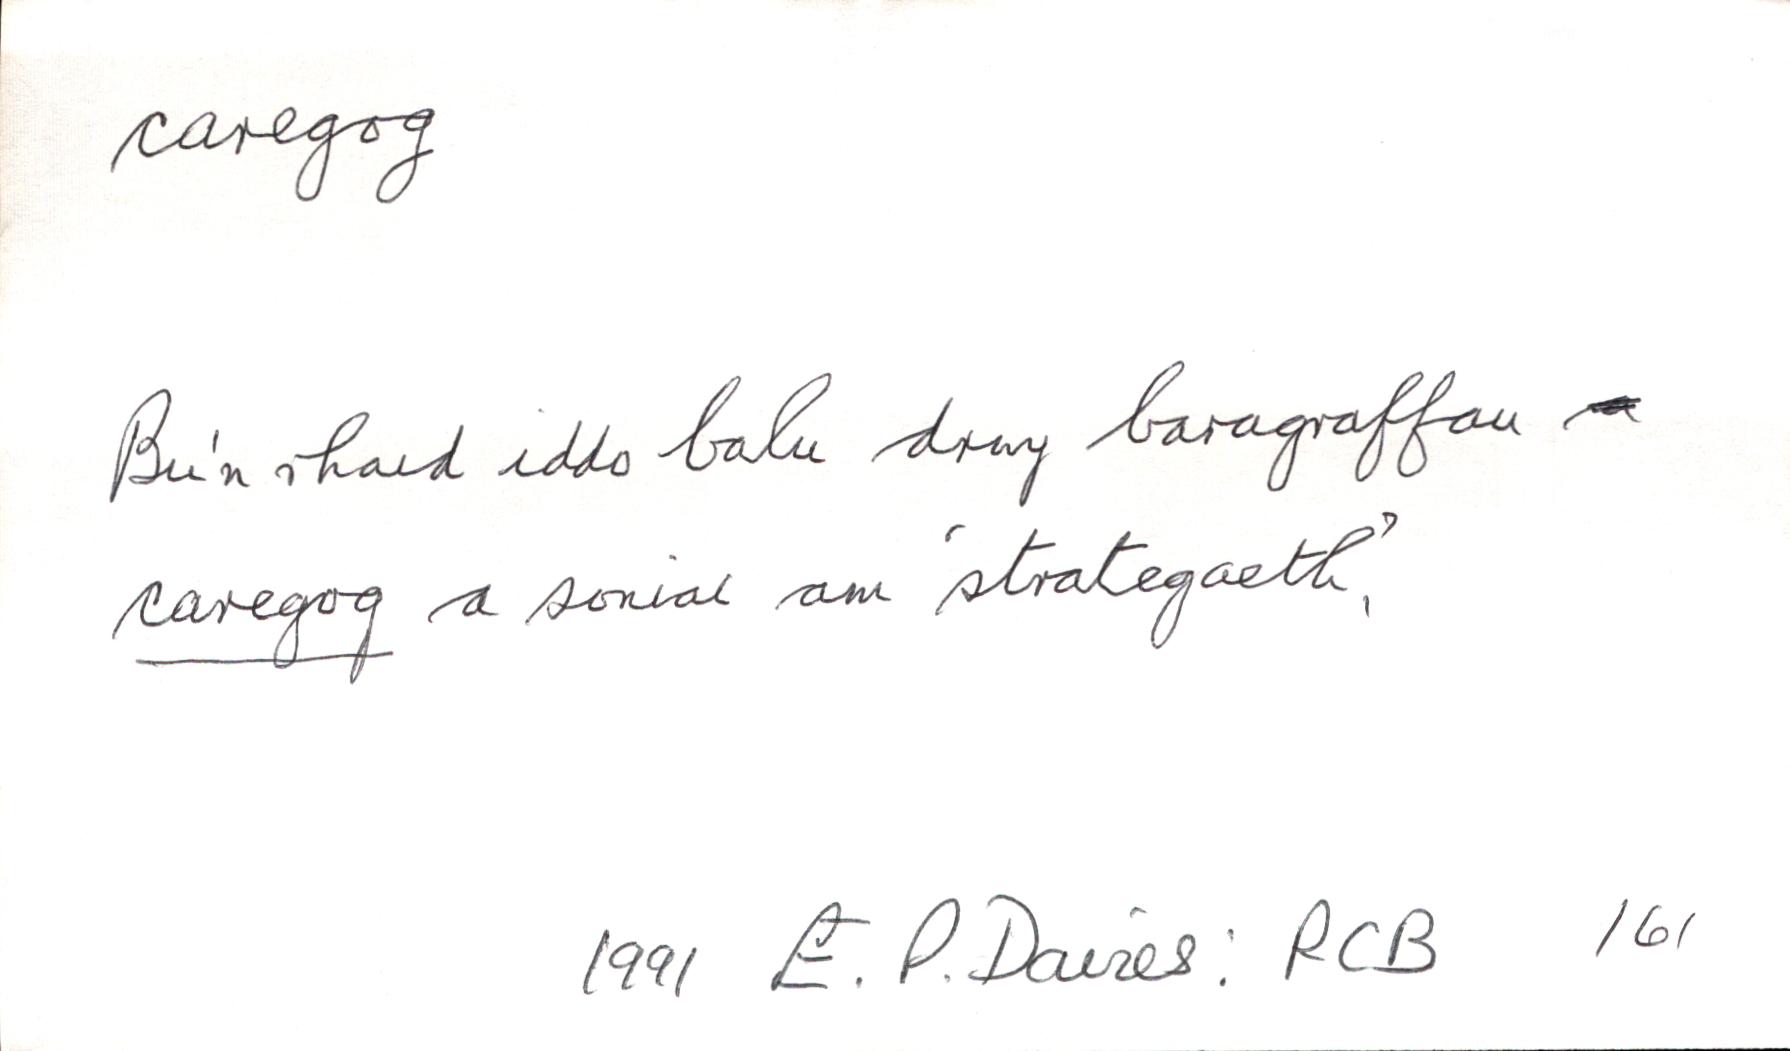 caregog
Bu'n rhaid iddo balu drwy baragraffau
caregog a soniai am 'strategaeth',
1991 E. P. Davies: RCB 161